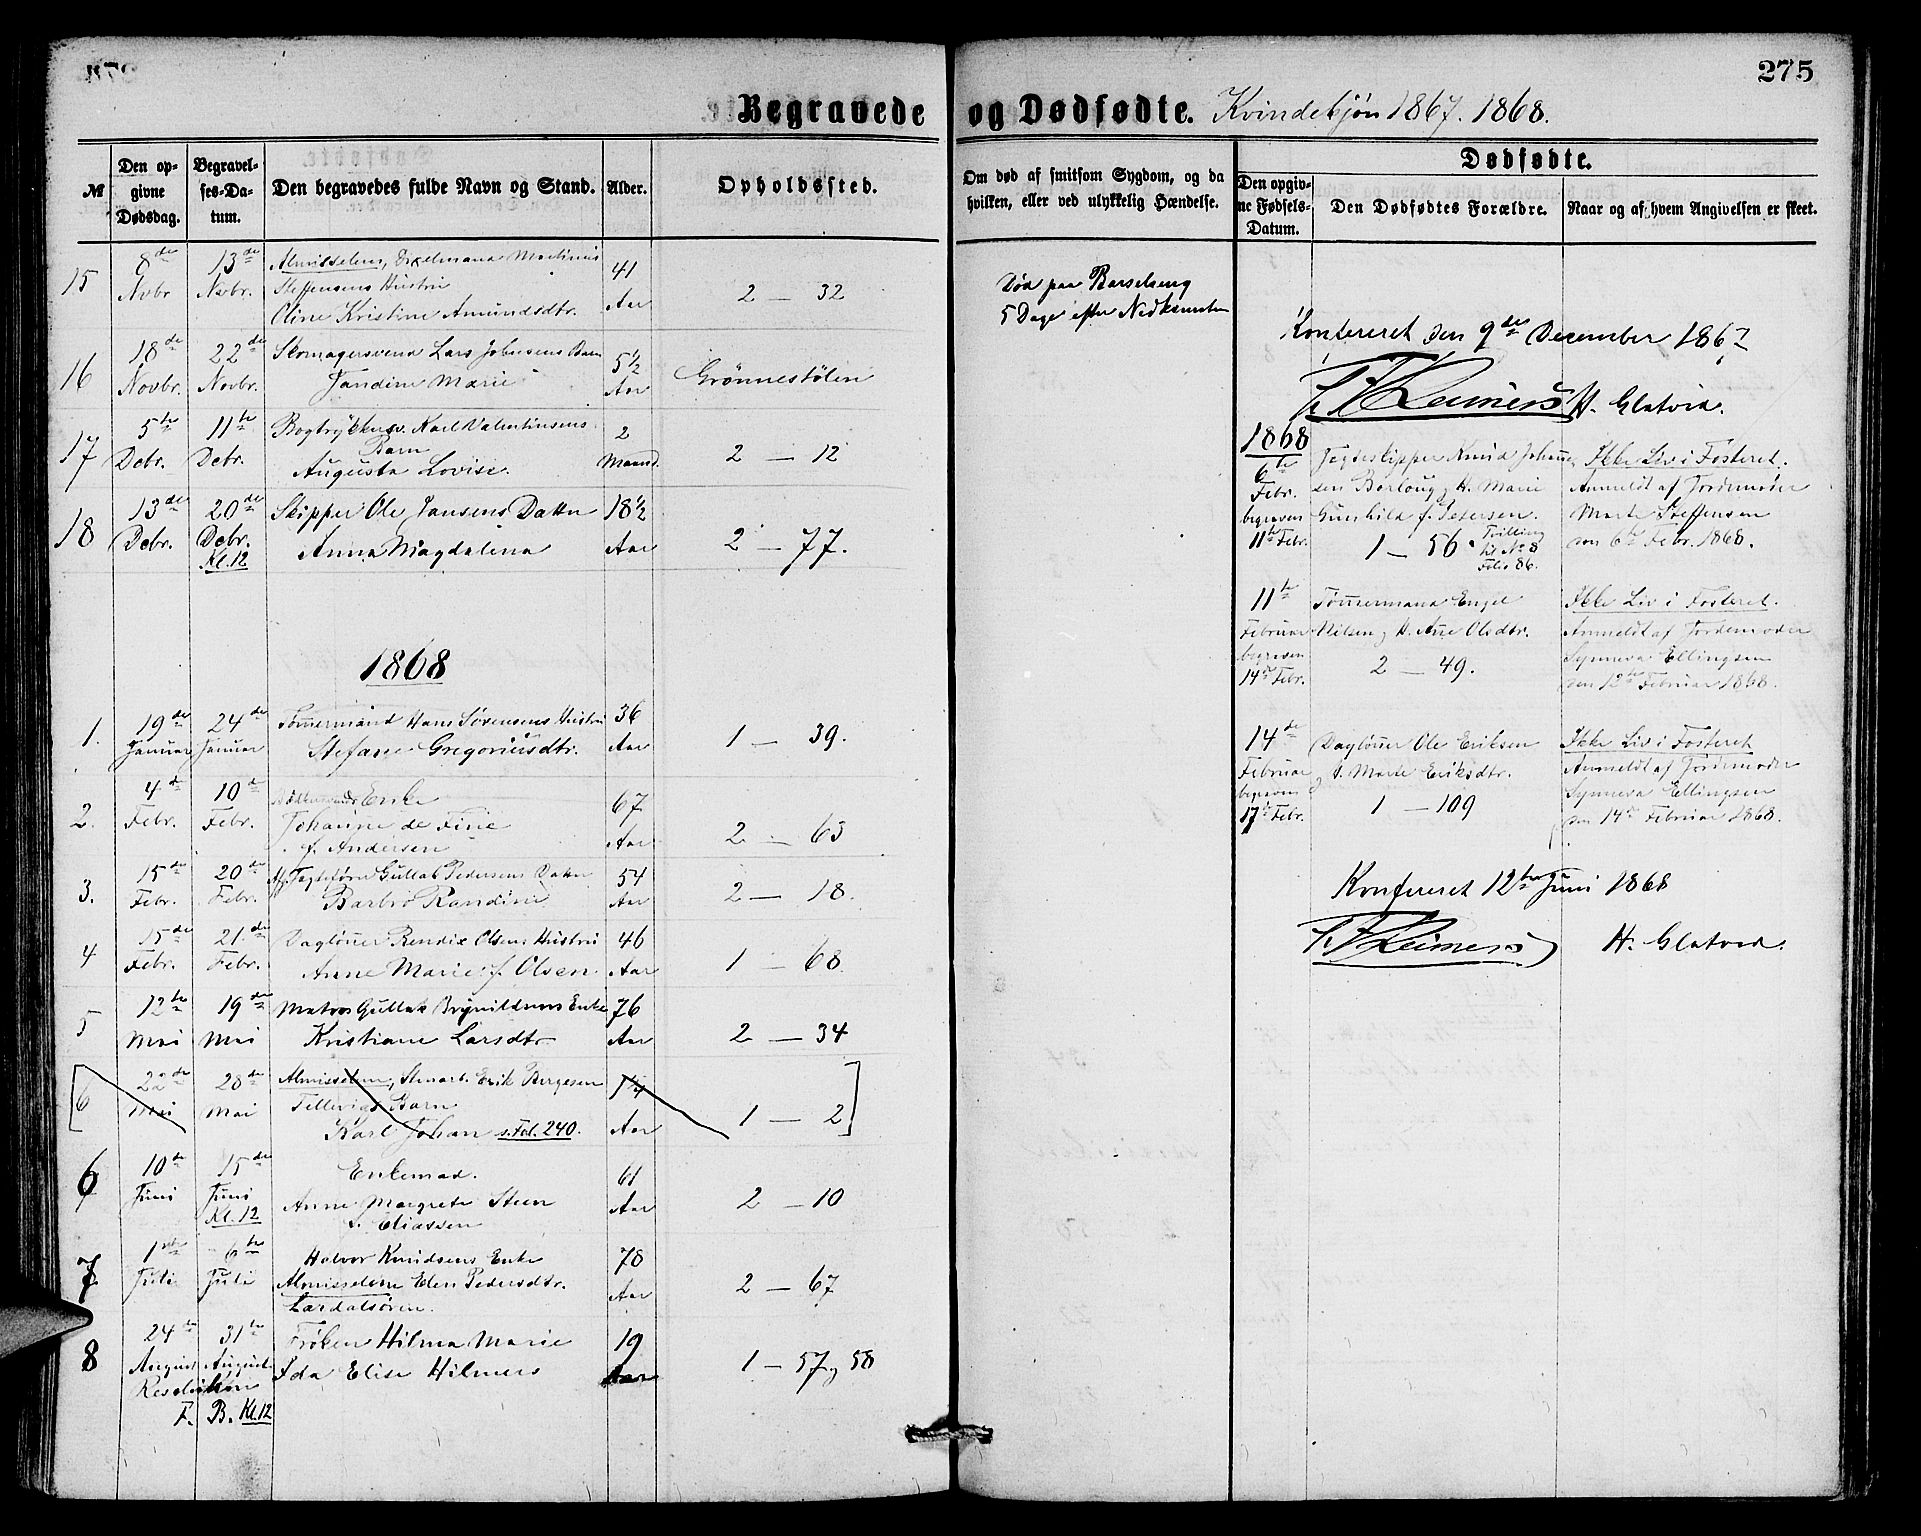 275
Begravede og Dødfødte. Kvindekjøn 1867. 1868.
№
Den opgivne Dødsdag.
Begravelses-Datum.
Den begravedes fulde Navn og Stand.
Alder.
Opholdssted.
Om død af smitsom Sygdom, og da hvilken, eller ved ulykkelig Hændelse.
Dødfødte.
Den opgivne Fødsels-Datum.
Den Dødfødtes Forældre.
Naar og af hvem Angivelsen er skeet.
15
8de Novbr
13de Novbr.
Almisselem, Martinius
Steffensens Hustru
Oline Kristine Amundsdtr.
41 Aar
2 — 32
Død paa Barselseng
5 Dage efter Nedkomsten
16
18de Novbr.
22de Novbr.
Skomagersvend Lars Johnsens Barn
Jandine Marie
5½ Aar
Grønnestølen
17
5te Debr.
11te Debr.
Bogtrykkersv. Karl Valentinsens
Barn
Augusta Lovise.
2 Maand.
2 — 12
18
13de Debr.
20de Debr. Kl. 12
Skipper Ole Jansens Datter
Anna Magdalena
18½ Aar
2 — 77.
1868
1.
19de Januar
24de Januar
Tømmermand Hans Sørensens Hustru
Stefane Gregoriusdtr.
36 Aar
1 — 39.
2.
4de Febr.
10de Febr.
Enke
Johanne de Fine
f. Andersen
67 Aar
2 — 63
3.
15de Febr.
20de Febr.
Gullak Pedersens Datter
Barbro Randine
54 Aar
2 — 18.
4
15de Febr.
21de Febr.
Dagløner Bendix Olsens Hustru
Anne Marie f. Olsen.
46 Aar
1 — 68.
5
12te Mai
19de Mai
Matros Gullak Brynildsens Enke
Kristiane Larsdtr.
76 Aar
2 — 34
6
22de Mai
28de Mai
Almisselem, Erik Bergesen
Tellevigs Barn
Karl Johan s. Fol. 240.
1¼ Aar
1 — 2
6
10de Juni
15de Juni Kl. 12
Enkemad.
Anne Margrete Steen
f. Eliassen
61 Aar
2 — 10
7
1ste Juli
6te Juli
Halvor Knudsens Enke
Almisselem Elen Pedersdtr.
Lardalsøren.
78 Aar
2 — 67
8
24de August
31te August
Frøken Hilma Marie
Ida Elise Hilmers
19 Aar
1 — 57 og 58
F. B. Kl. 12
Konfereret den 9de December 1867
H. Glatved.
1868
6te Febr. begraven 11te Febr.
Jegteskipper Knud Johannesen Borlaug og H. Marie
Gunhild f. Petersen.
1 — 56. Tvilling til No 8 Folio 86.
Ikke Liv i Fosteret.
Anmeldt af Jordemoder
Marte Steffensen
den 6te Febr. 1868.
11te Februar begraven 14de Febr.
Tømmermand Engel
Nilsen og H. Ane Olsdtr.
2 — 49.
Ikke Liv i Fosteret.
Anmeldt af Jordemoder
Synneva Ellingsen
den 12te Februar 1868.
14de Februar begraven 17de Febr.
Dagløner Ole Eriksen
og H. Marte Eriksdtr.
1 — 109
Ikke Liv i Fosteret
Anmeldt af Jordemoder
Synneva Ellingsen
den 14de Februar 1868.
Konfereret 12te Juni 1868
H. Glatved.